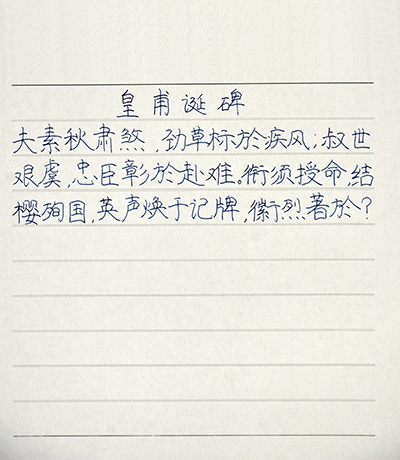 皇甫诞碑
夫素秋肃煞,劲草标於疾风;叔世
艰虞,忠臣彰於赴难。衔须授命,结
樱殉国,英声焕于记牌,徽烈著於?